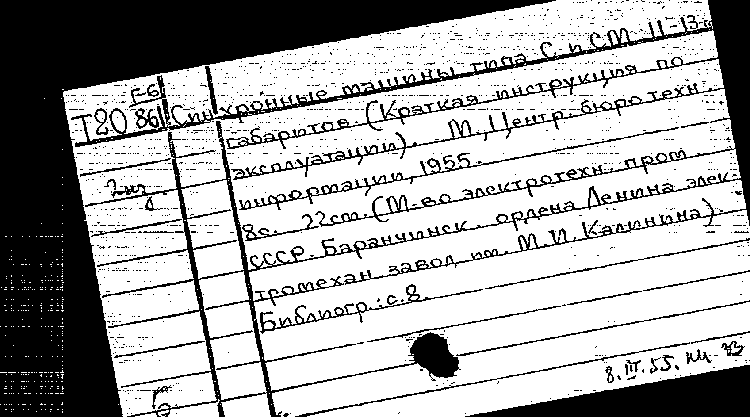 Г-6
Т20 861 Синхронные машины типа С и СМ 11-13го
габаритов. (Краткая инструкция по
эксплуатации). М., Центр. бюро техн.
информации, 1955.
2 из
8с. 22cm. (М-во электротехн. пром.
СССР. Баранчинск. ордена Ленина элек-
тромехан завод им. М.И. Калинина).
Библиогр.: с.8.
Б
8.III.55.